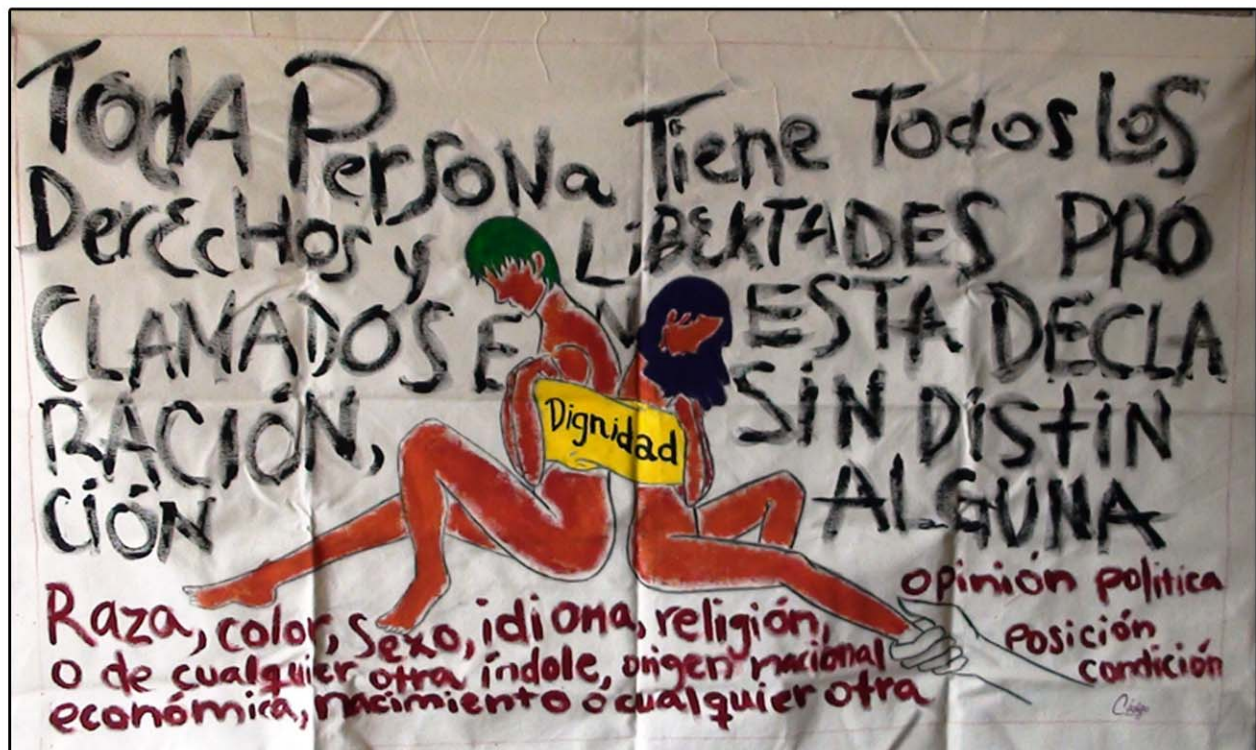 Toda Persona Tiene Todos Los
Derechos y LiBERTADES PRO
CLAMADOS EN ESTA DECLA
RACIÓN, SiN DistiN
CiÓN ALGUNA
Raza, color, sexo, idioma, religión, opinión politica
o de cualquier otra índole, origen nacional posición
económica, nacimiento ó cualquier otra condición
Dignidad